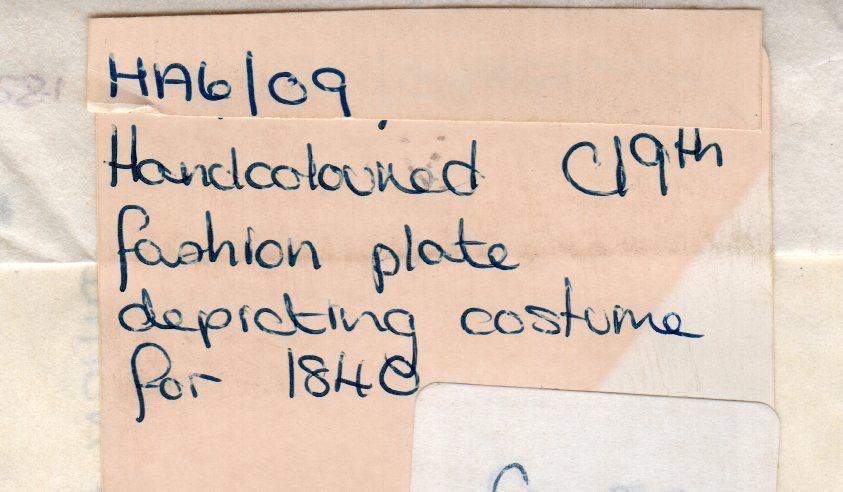 HA6/09
Handcoloured C19th
fashion plate
depicting costume
for 1840